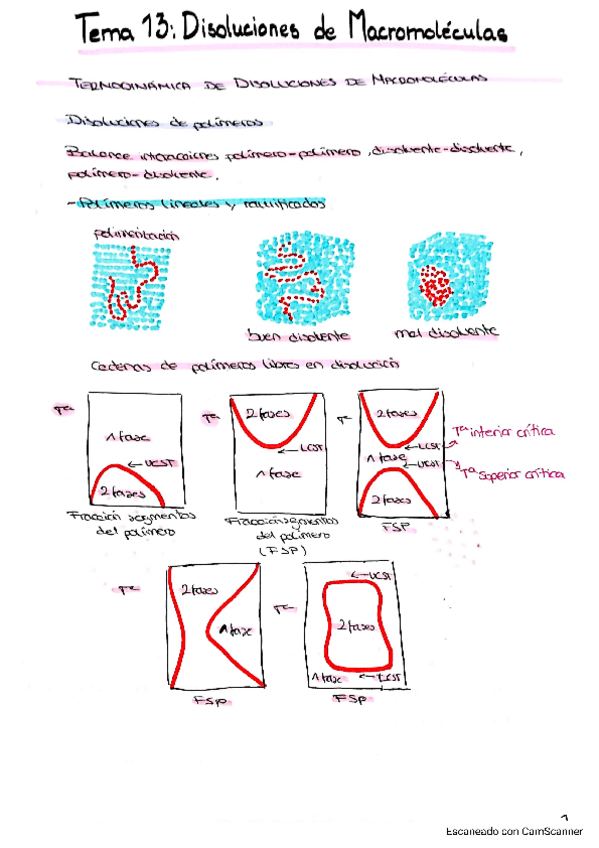 Tema 13: Disoluciones de Macromoléculas
TERMODINÁMICA DE DISOLUCIONES DE MACROMOLÉCULAS
Disoluciones de polímeros
Balance interacciones polímero-polímero, disolvente-disolvente,
polímero-disolvente.
- Polímeros lineales y ramificados
polimerización
buen disolvente
mal disolvente
Cadenas de polímeros libres en disolución
Tª
1 fase
UCST
2 fases
Fracción segmentos
del polímero
Tª
2 fases
LCST
1 fase
Fracción segmentos
del polímero
(FSP)
T
2 fases
LCST
Tª inferior crítica
1 fase
UCST
Tª superior crítica
2 fases
FSP
Tª
2 fases
1 fase
FSP
Tª
UCST
2 fases
1 fase
LCST
FSP
1
Escaneado con CamScanner